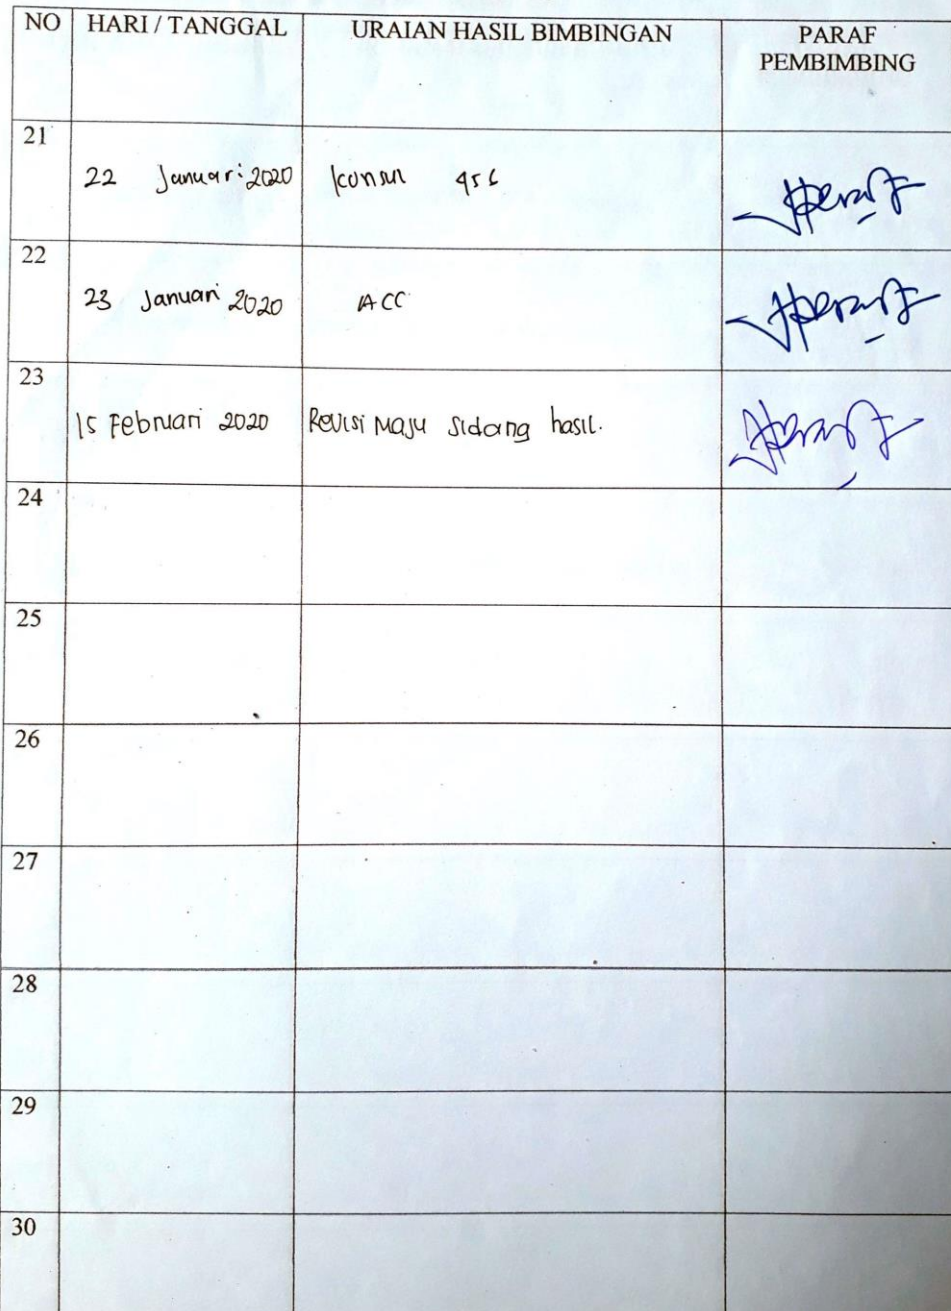 NO HARI / TANGGAL URAIAN HASIL BIMBINGAN PARAF
PEMBIMBING
21
22 Januari 2020 konsul 456
22
23 Januari 2020 ACC
23
15 Februari 2020 Revisi Maju Sidang hasil.
24
25
26
27
28
29
30